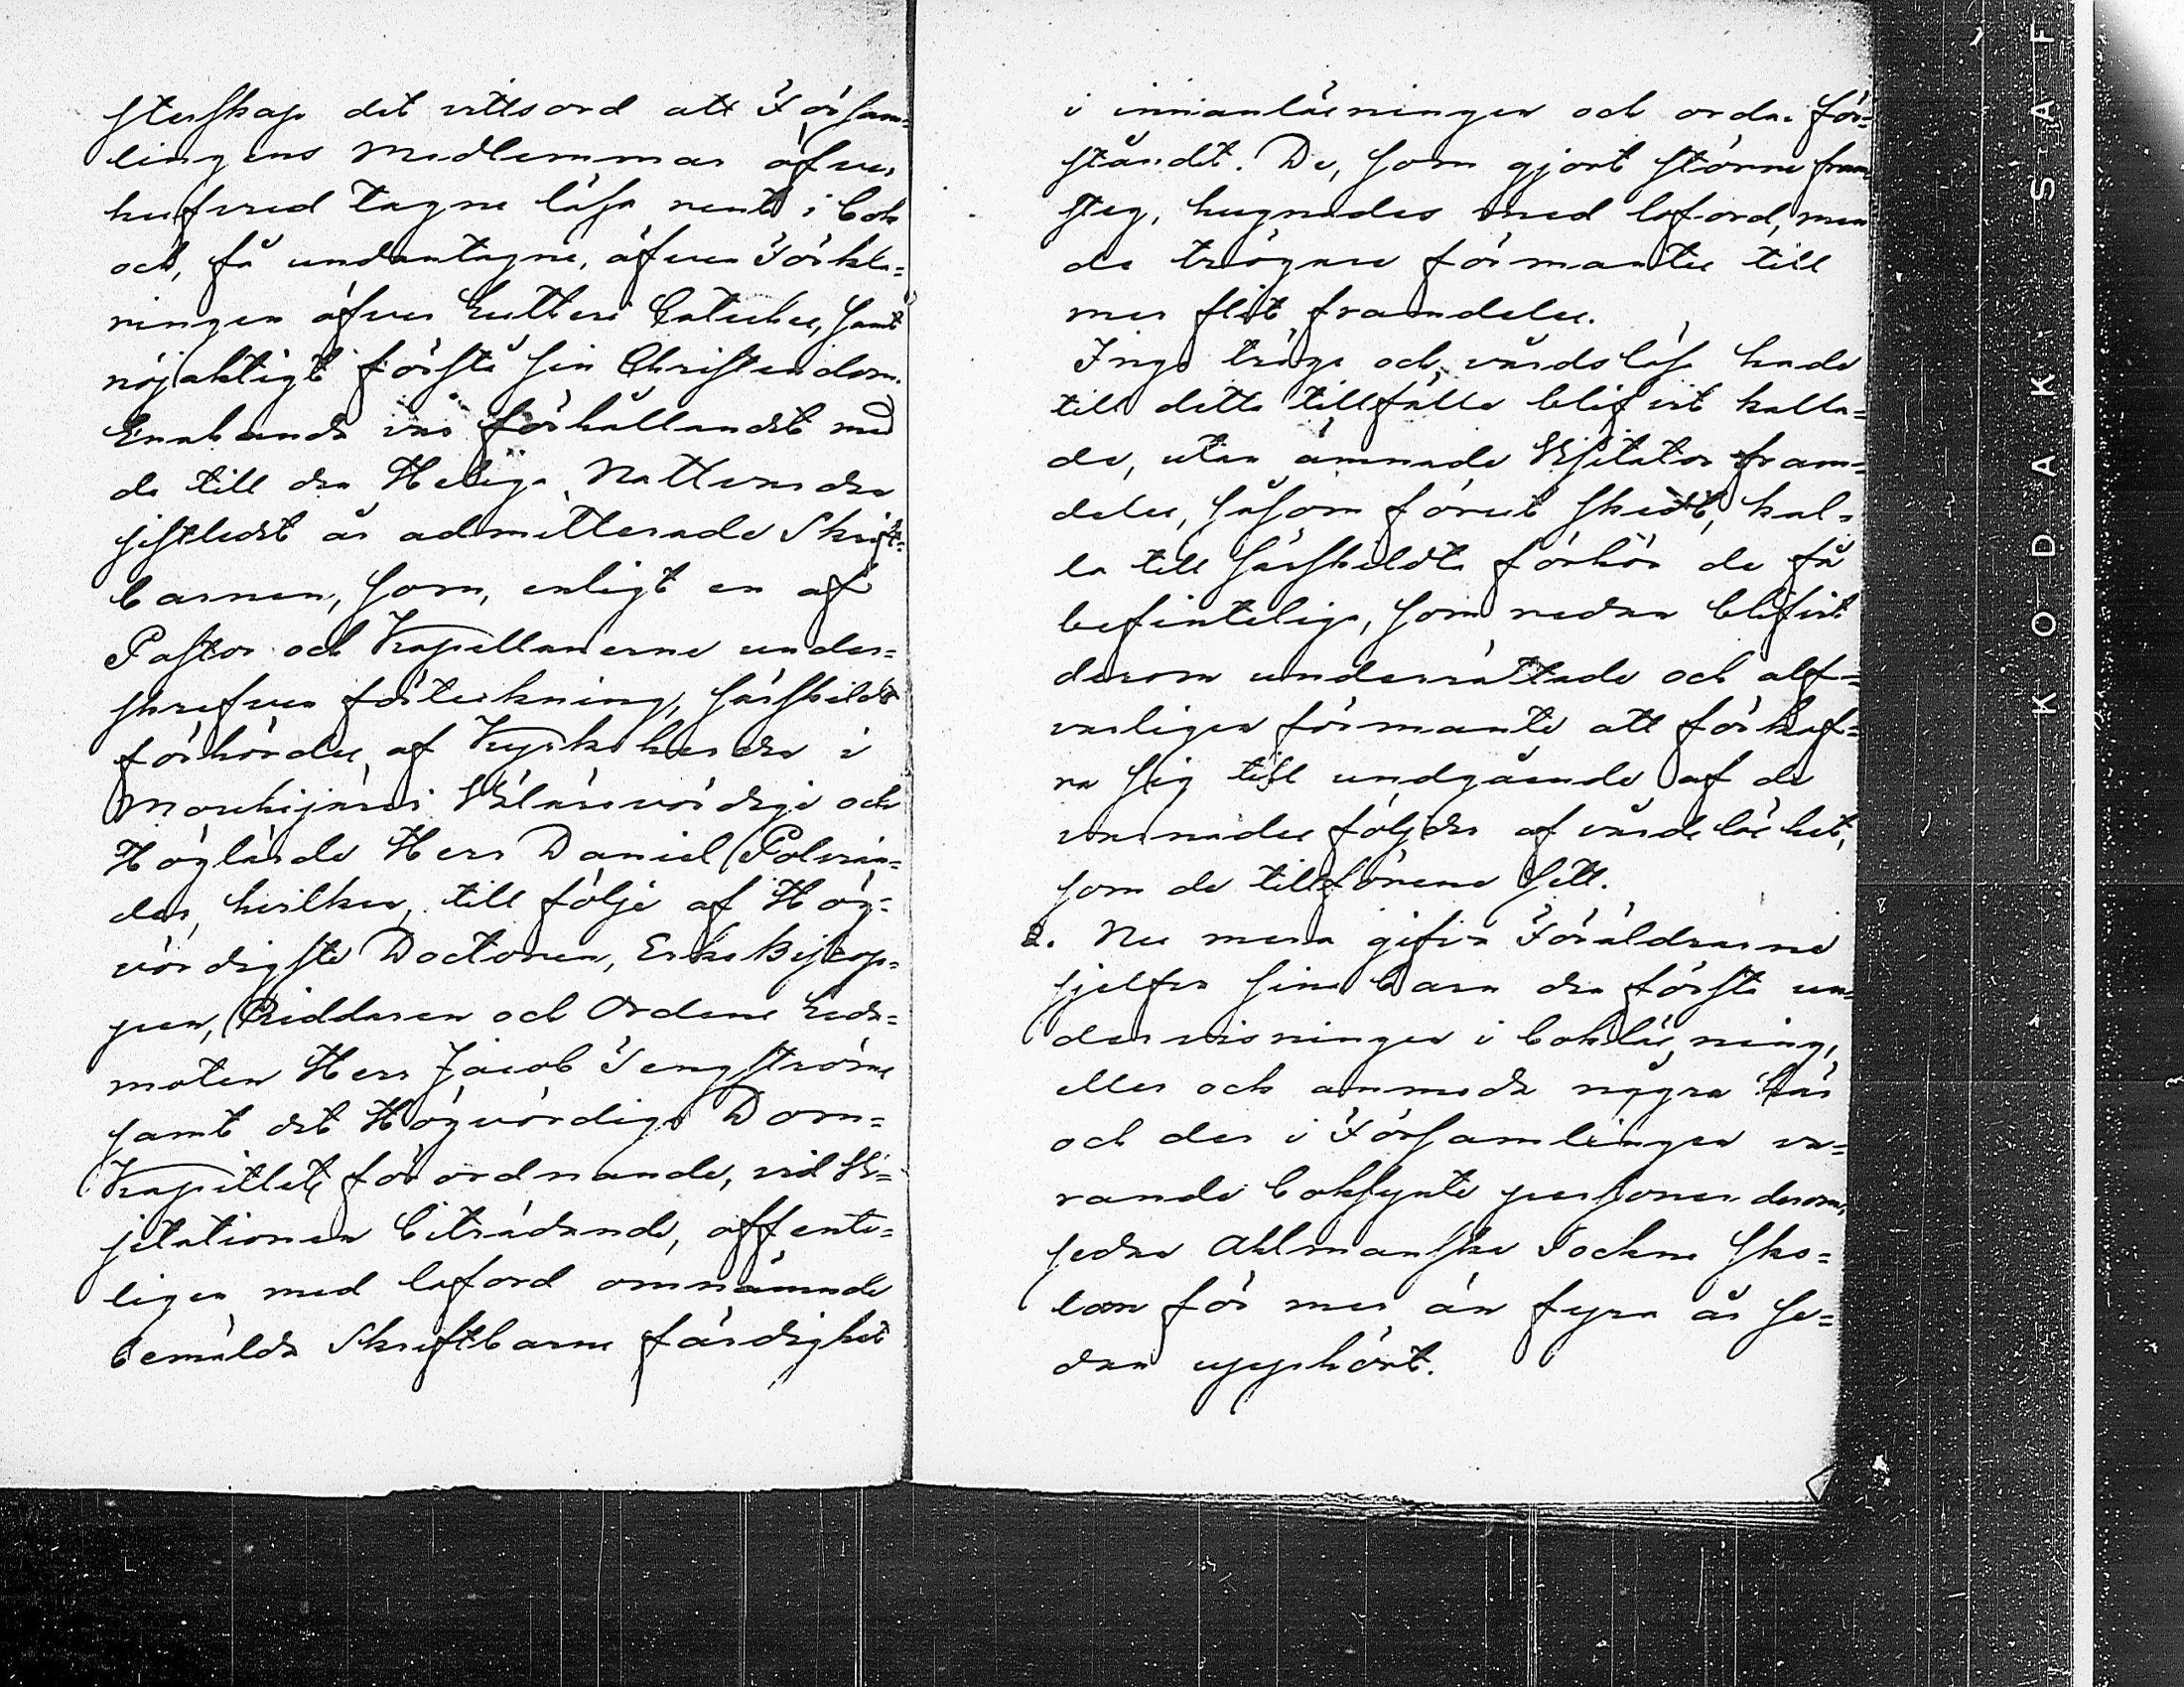 sterskap det vittsord att Försam=
lingens Medlemmar öfver
hufvud tagne läsa rent i bok
och, få undantagne, äfven Förkla=
ringen öfver Lutheri Cateches, samt
nöjaktigt förstå sin Christendom.
Enahanda var förhållandet med
de till den Heliga Nattvarden
sistledet år admitterade Skrift=
barnen, som, enligt en af
Pastor och Kapellanerne under=
skrefven förteckning, särskildt
förhördes af Kyrkoherden i
Mouhijärvi Välärevördige och
Höglärde Herr Daniel Polvian=
der, hvilken, till följe af Hög=
vördigste Doctoren, Erke Biskop=
pen, Riddaren och Ordens Leda=
moten Herr Jacob Tengströms
samt det Högvördiga Dom=
Kapitlets förordnande, vid Vi=
sitationen biträdande, offente=
ligen med loford omnämnde
bemälde Skriftbarns färdighet
i innanläsningen och ordaför=
ståndet. De, som gjort större fram
steg, hugnades med loford, men
de trögare förmantes till
mer flit framdeles.
Inga tröga och vårdslösa hade
till detta tillfälle blifvit kalla=
de, utan ämnade Visitator fram=
deles, såsom förut skedt, kal=
la till särskildta förhör de få
befinteliga, som redan blifvit
derom underrättade och alf=
varligen förmante att förkof=
ra sig till undgående af de
varnades följder af vårdslöshet,
som de tillförene sett.
2. Nu mera gifva Föräldrarne
sjelfva sina barn den första un=
dervisningen i bokläsning,
eller och anmoda några här
och der i Församlingen va=
rande boksynte personer derom,
sedan Ahlmanska Sockne Sko=
lan för mer än fyra år se=
dan upphört.
KODAK SAF